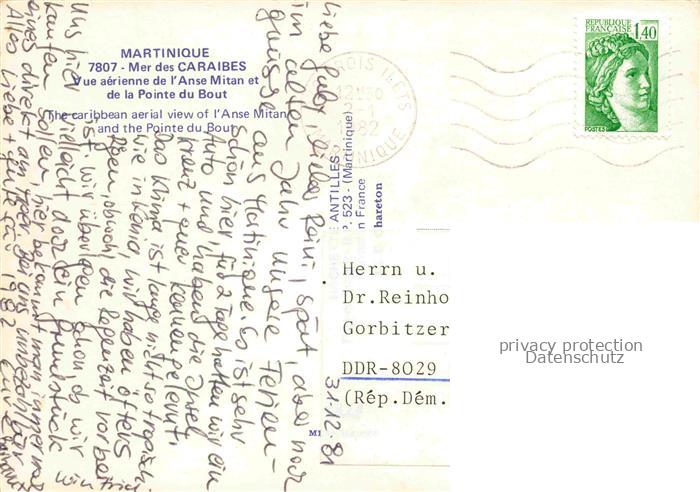 MARTINIQUE
7807 - Mer des CARAIBES
Vue aérienne de l'Anse Mitan et
de la Pointe du Bout
The caribbean aerial view of l'Anse Mitan
and the Pointe du Bout
RÉPUBLIQUE
FRANÇAISE
1,40
POSTES
ILETS
12H30
2-1
1982
MARTINIQUE
ANTILLES
P. 523 - (Martinique)
n France
hareton
31.12.81
Liebe Gaby, lieber Reini, spät, aber noch
im alten Jahr unsere Ferien-
grüsse aus Martinique. Es ist sehr
schön hier, für 2 Tage hatten wir ein
Auto und haben die Insel
kreuz + quer kennengelernt.
Das Klima ist lange nicht so tropisch
wie in Kenia, wir haben öfters
Regen, obwohl die Regenzeit vorbei ist.
Uns hier
wir überlegen schon, ob wir
vielleicht doch ein Grundstück
kaufen sollen, hier bekommt man immer noch
eines direkt am Meer, bei uns unbezahlbar
Alles Liebe + Gute für 1982
Herrn u.
Dr.Reinho
Gorbitzer
DDR-8029
(Rép.Dém.
privacy protection
Datenschutz